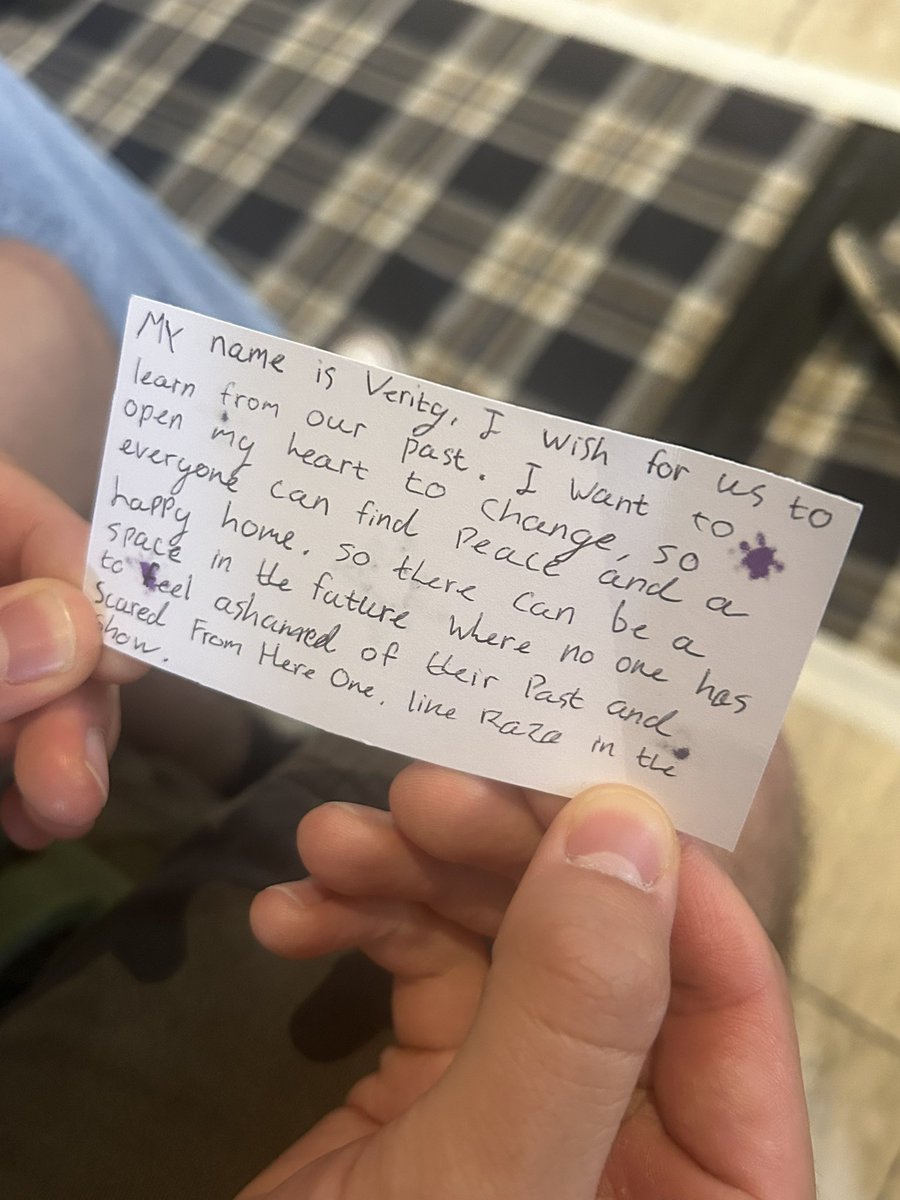 MY name is Verity, I wish for us to
learn from our past. I want to
open my heart to change, so
everyone can find peace and a
happy home. so there can be a
space in the future where no one has
to feel ashamed of their past and
Scared From Here One. like Raza in the
show.